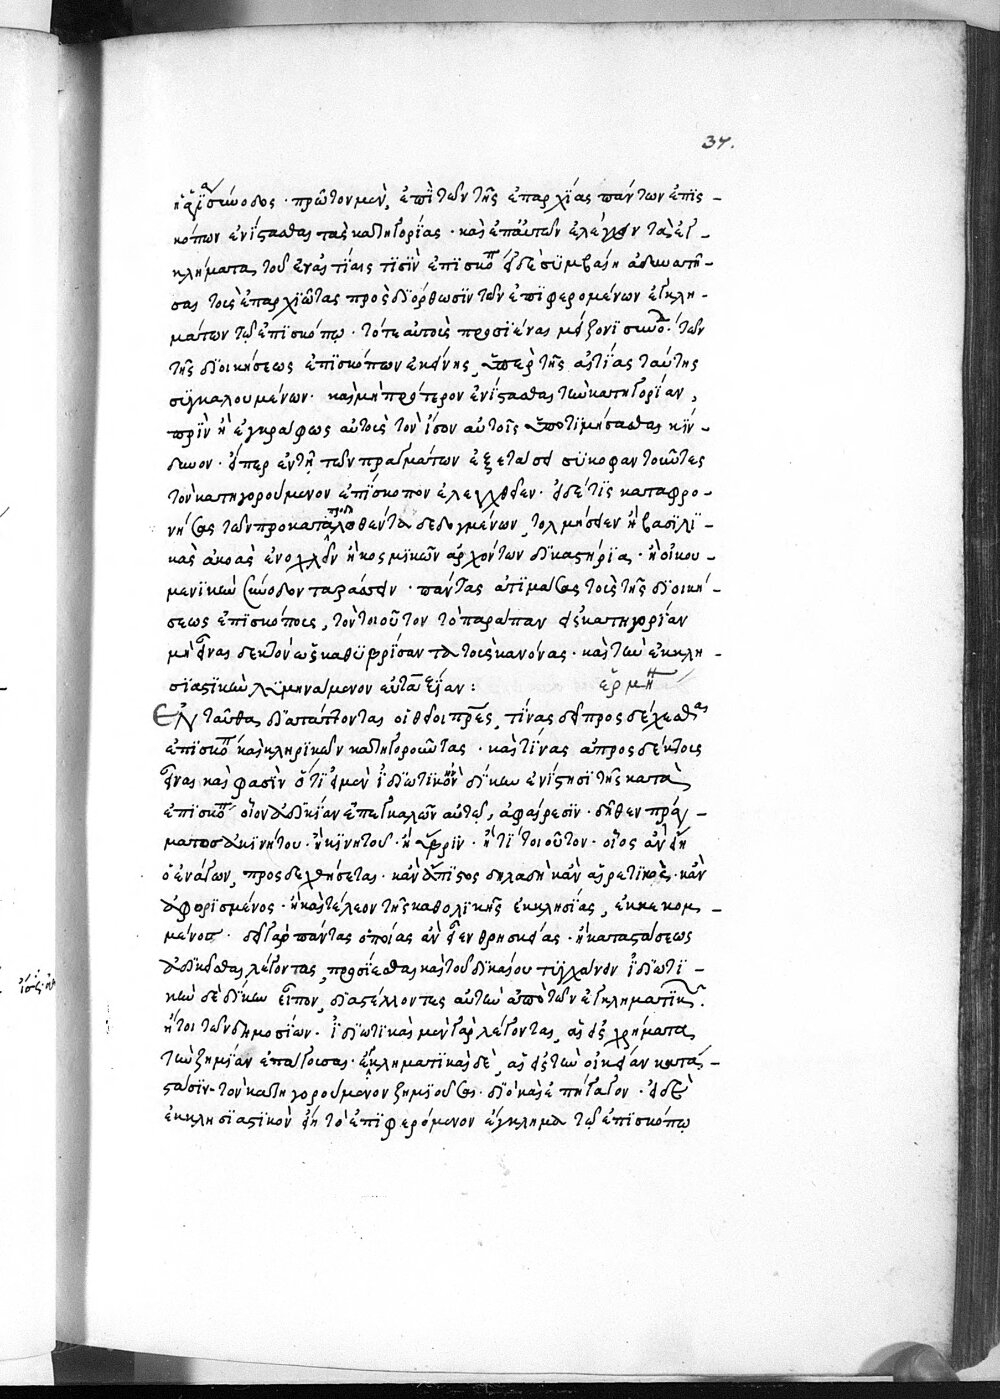 37.
ἡ ἁγία σύνοδος · πρῶτον μὲν, ἐπὶ τῶν τῆς ἐπαρχίας πάντων ἐπισ-
κόπων ἐνίστασθαι τὰς κατηγορίας · καὶ ἐπ' αὐτῶν ἐλέγχειν τὰ ἐγ-
κλήματα τοῦ ἐν αἰτίαις τισὶν ἐπισκόπου εἰ δὲ συμβαίη ἀδυνατῆ-
σαι τοὺς ἐπαρχιώτας πρὸς διόρθωσιν τῶν ἐπιφερομένων ἐγκλη-
μάτων τῷ ἐπισκόπῳ · τότε αὐτοὺς προσιέναι μείζονι συνόδῳ · τῶν
τῆς διοικήσεως ἐπισκόπων ἐκείνης, ὑπὲρ τῆς αἰτίας ταύτης
συγκαλουμένων · καὶ μὴ πρότερον ἐνίστασθαι τὴν κατηγορίαν,
πρὶν ἢ ἐγγράφως αὐτοὺς τὸν ἴσον αὐτοῖς ὑποτιμήσασθαι κίν-
δυνον · εἴπερ ἐν τῇ τῶν πραγμάτων ἐξετάσει συκοφαντοῦντες
τὸν κατηγορούμενον ἐπίσκοπον ἐλεγχθεῖεν · εἰ δέ τις καταφρο-
νήσας τῶν προκαταδηλωθέντων δεδογμένων, τολμήσειεν ἢ βασιλι-
κὰς ἀκοὰς ἐνοχλεῖν ἢ κοσμικῶν ἀρχόντων δικαστήρια · ἢ οἰκου-
μενικὴν σύνοδον ταράσσειν · πάντας ἀτιμάσας τοὺς τῆς διοική-
σεως ἐπισκόπους, τὸν τοιοῦτον τὸ παράπαν εἰς κατηγορίαν
μὴ εἶναι δεκτὸν ὡς καθυβρίσαντα τοὺς κανόνας · καὶ τὴν ἐκκλη-
σιαστικὴν λυμηνάμενον εὐταξίαν : ἑρμη
Ἐνταῦθα διαπάττονται οἱ θεῖοι πρες, τίνας δεῖ προσδέχεσθαι
ἐπισκόπου καὶ κληρικῶν κατηγοροῦντας · καὶ τίνας ἀπροσδέκτους
εἶναι καὶ φασὶν ὅτι εἰ μὲν ἰδιωτικὴν δίκην ἐνίστησί τις κατὰ
ἐπισκόπου οἷον ἀδικίαν ἐπεγκαλῶν αὐτῷ, ἀφαίρεσιν · δῆθεν πράγ-
ματος ἀκινήτου · ἢ κινητοῦ · ἢ ὕβριν · ἤ τι τοιοῦτον · οἷος ἂν εἴη
ὁ ἐνάγων, προσδεχθήσεται · κἂν ἄπιστος δηλαδὴ κἂν αἱρετικὸς · κἂν
ἀφωρισμένος · ἢ καὶ τέλεον τῆς καθολικῆς ἐκκλησίας, ἐκκεκομ-
μένος · δεῖ γὰρ πάντας ὁποίας ἂν εἶεν θρησκείας · ἢ καταστάσεως
ἀδικεῖσθαι λέγοντας, προσίεσθαι καὶ τοῦ δικαίου τυγχάνειν ἰδιωτι-
κὴν δὲ δίκην εἶπον, διαστέλλοντες αὐτὴν ἀπὸ τῶν ἐγκληματικῶν ·
ἤτοι τῶν δημοσίων · ἰδιωτικαὶ μὲν γὰρ λέγονται, αἱ εἰς χρήματα
τὴν ζημίαν ἐπάγουσαι · ἐγκληματικαὶ δὲ, αἱ εἰς τὴν οἰκείαν κατά-
στασιν τὸν κατηγορούμενον ζημιοῦσαι · διὸ καὶ ἐπήγαγον · εἰ δὲ
ἐκκλησιαστικὸν εἴη τὸ ἐπιφερόμενον ἔγκλημα τῷ ἐπισκόπῳ